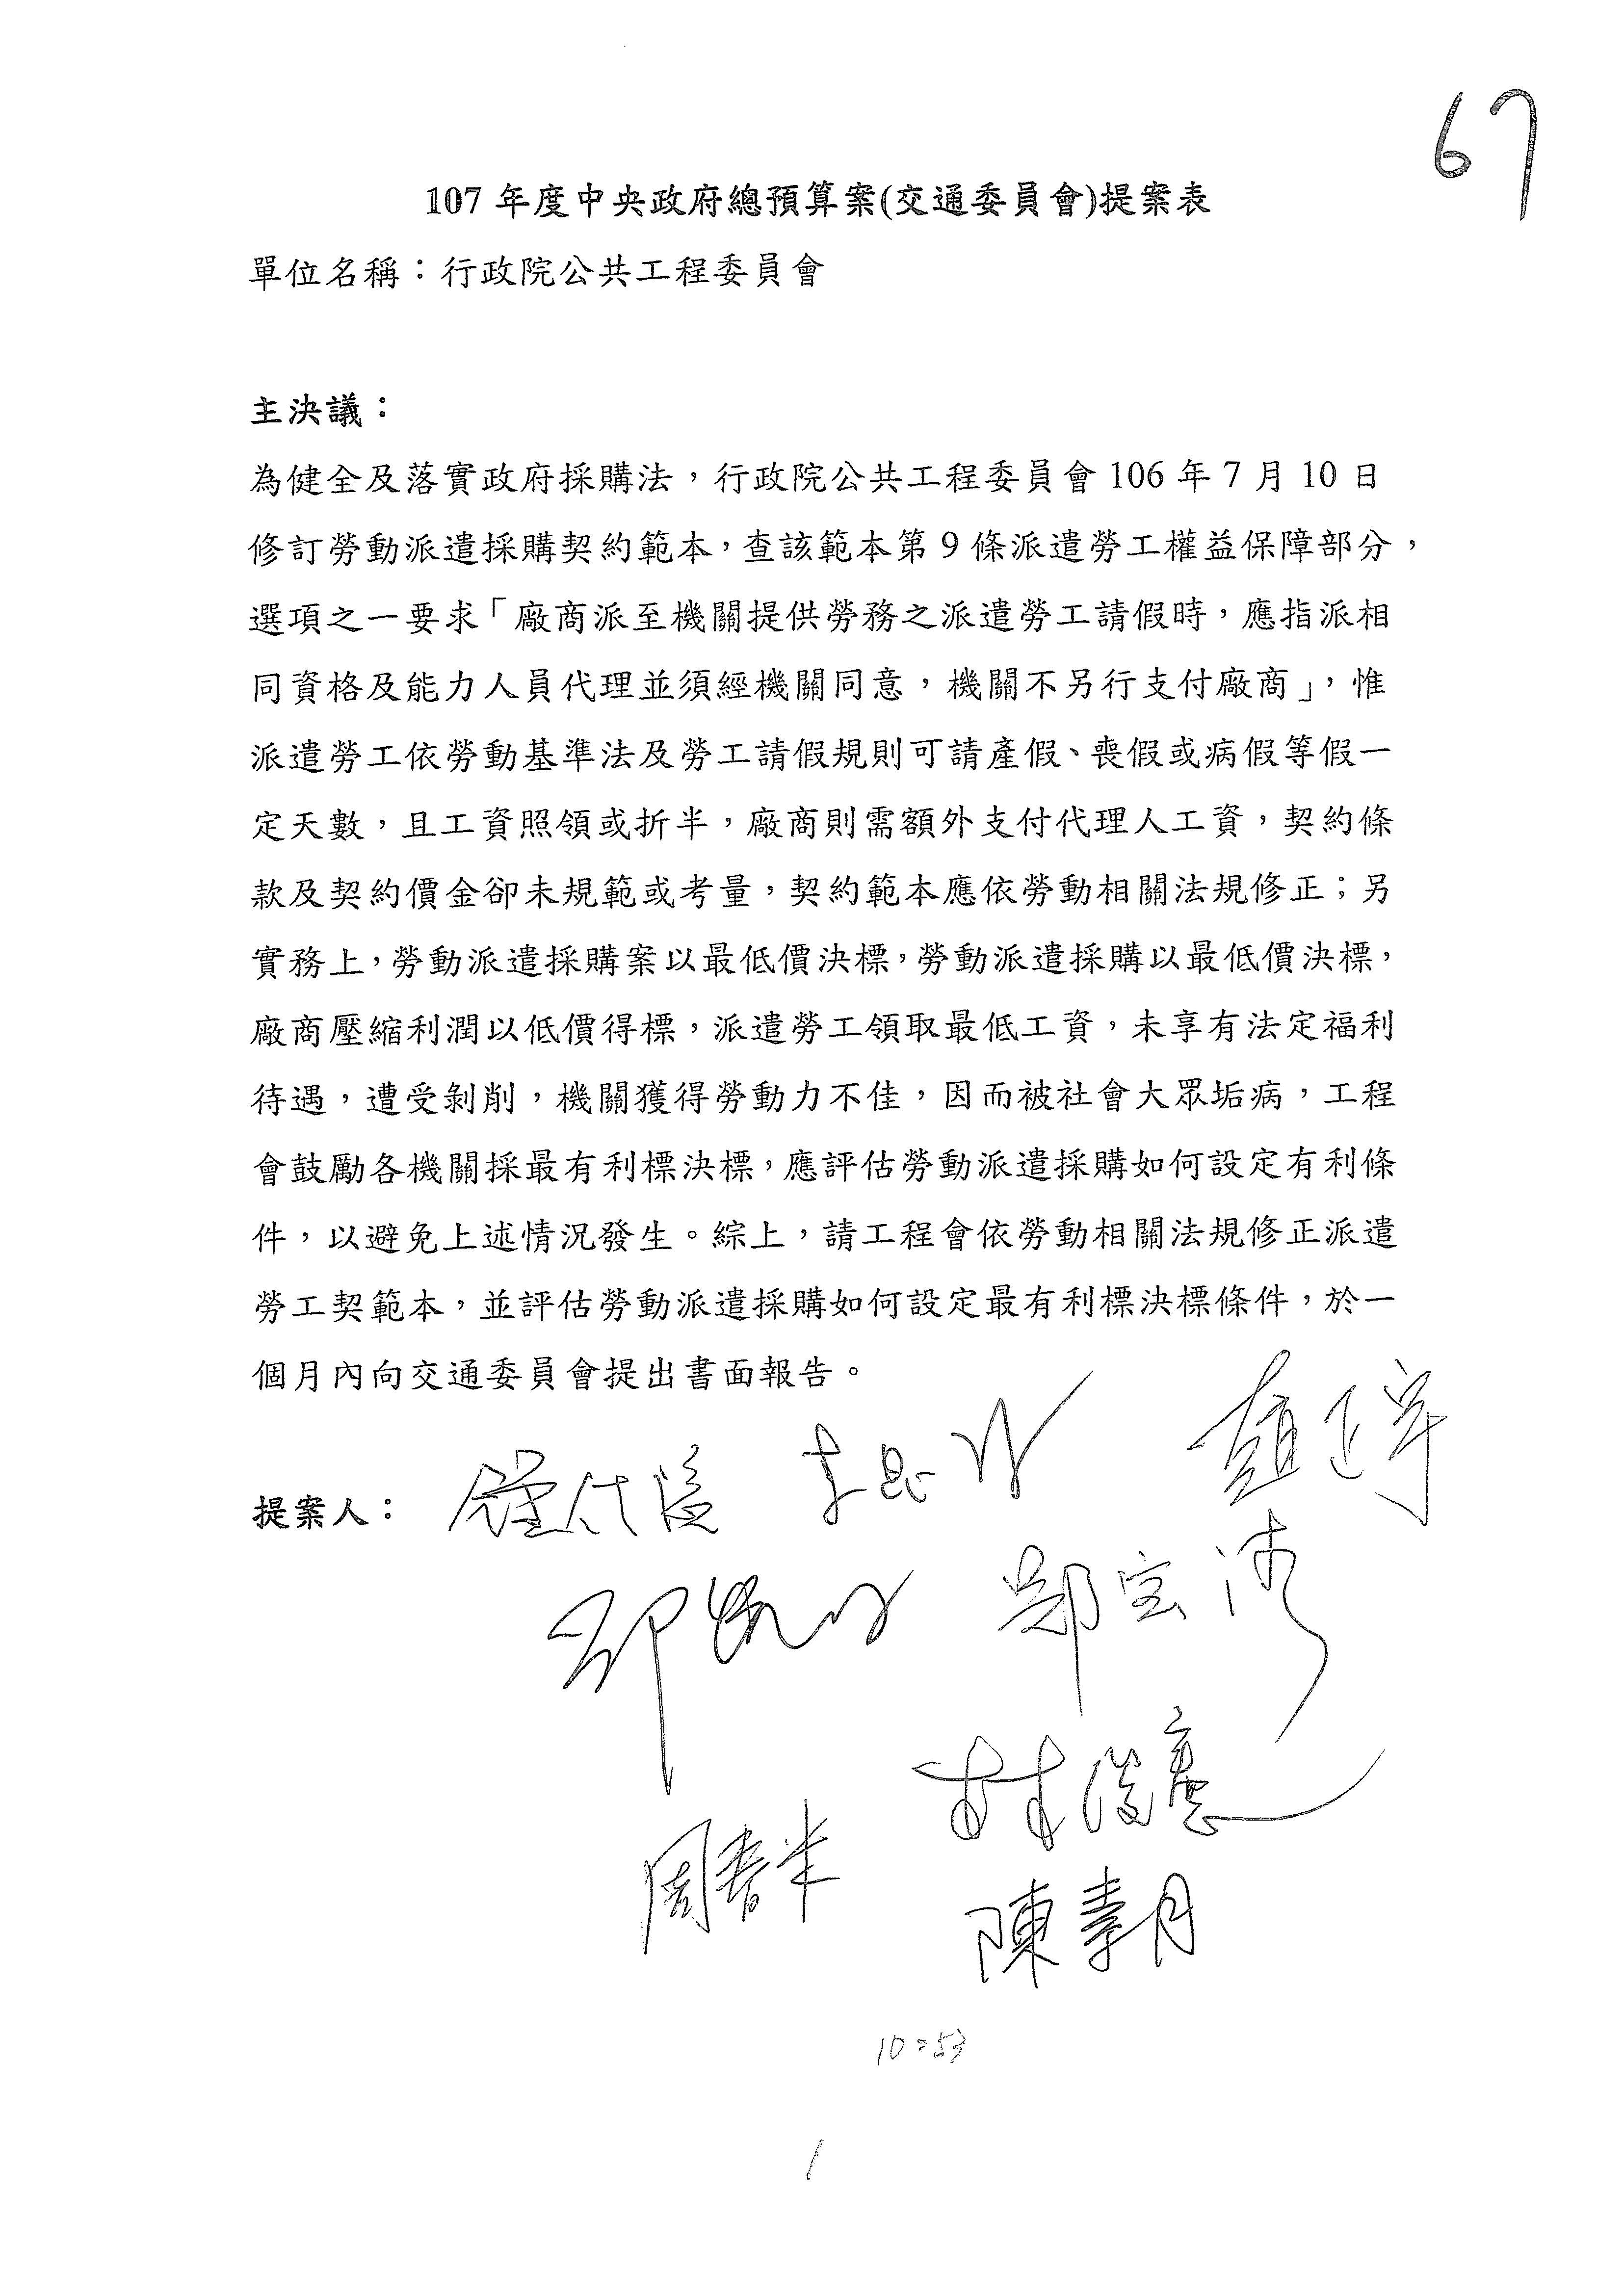 67
107 年度中央政府總預算案(交通委員會)提案表
單位名稱：行政院公共工程委員會
主決議：
為健全及落實政府採購法，行政院公共工程委員會 106 年 7 月 10 日
修訂勞動派遣採購契約範本，查該範本第 9 條派遣勞工權益保障部分，
選項之一要求「廠商派至機關提供勞務之派遣勞工請假時，應指派相
同資格及能力人員代理並須經機關同意，機關不另行支付廠商」，惟
派遣勞工依勞動基準法及勞工請假規則可請產假、喪假或病假等假一
定天數，且工資照領或折半，廠商則需額外支付代理人工資，契約條
款及契約價金卻未規範或考量，契約範本應依勞動相關法規修正；另
實務上，勞動派遣採購案以最低價決標，勞動派遣採購以最低價決標，
廠商壓縮利潤以低價得標，派遣勞工領取最低工資，未享有法定福利
待遇，遭受剝削，機關獲得勞動力不佳，因而被社會大眾垢病，工程
會鼓勵各機關採最有利標決標，應評估勞動派遣採購如何設定有利條
件，以避免上述情況發生。綜上，請工程會依勞動相關法規修正派遣
勞工契範本，並評估勞動派遣採購如何設定最有利標決標條件，於一
個月內向交通委員會提出書面報告。
提案人：
鄭宝清
林俊憲
周春米
陳素月
10:53
1